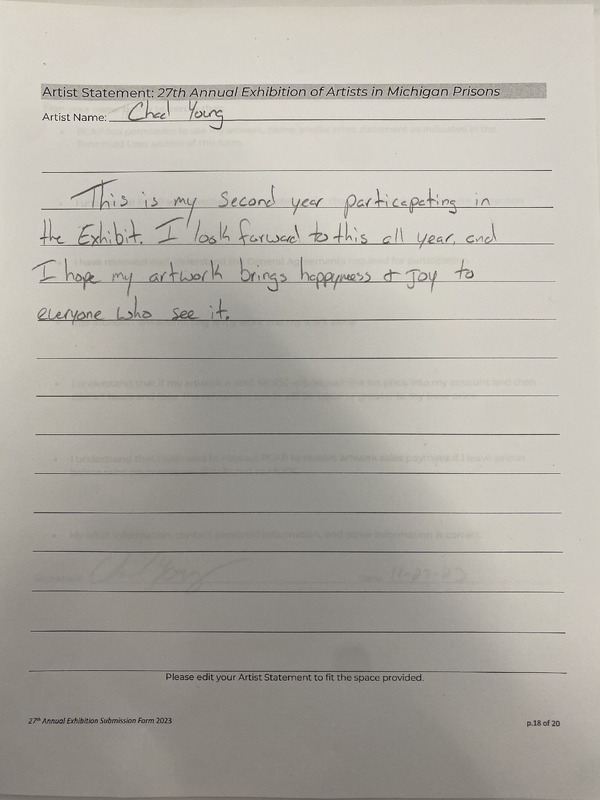 Artist Statement: 27th Annual Exhibition of Artists in Michigan Prisons
Artist Name: Chad Young
This is my Second year particapating in
the Exhibit. I look forward to this all year, and
I hope my artwork brings happyness & Joy to
everyone who see it.
Please edit your Artist Statement to fit the space provided.
27th Annual Exhibition Submission Form 2023
p.18 of 20